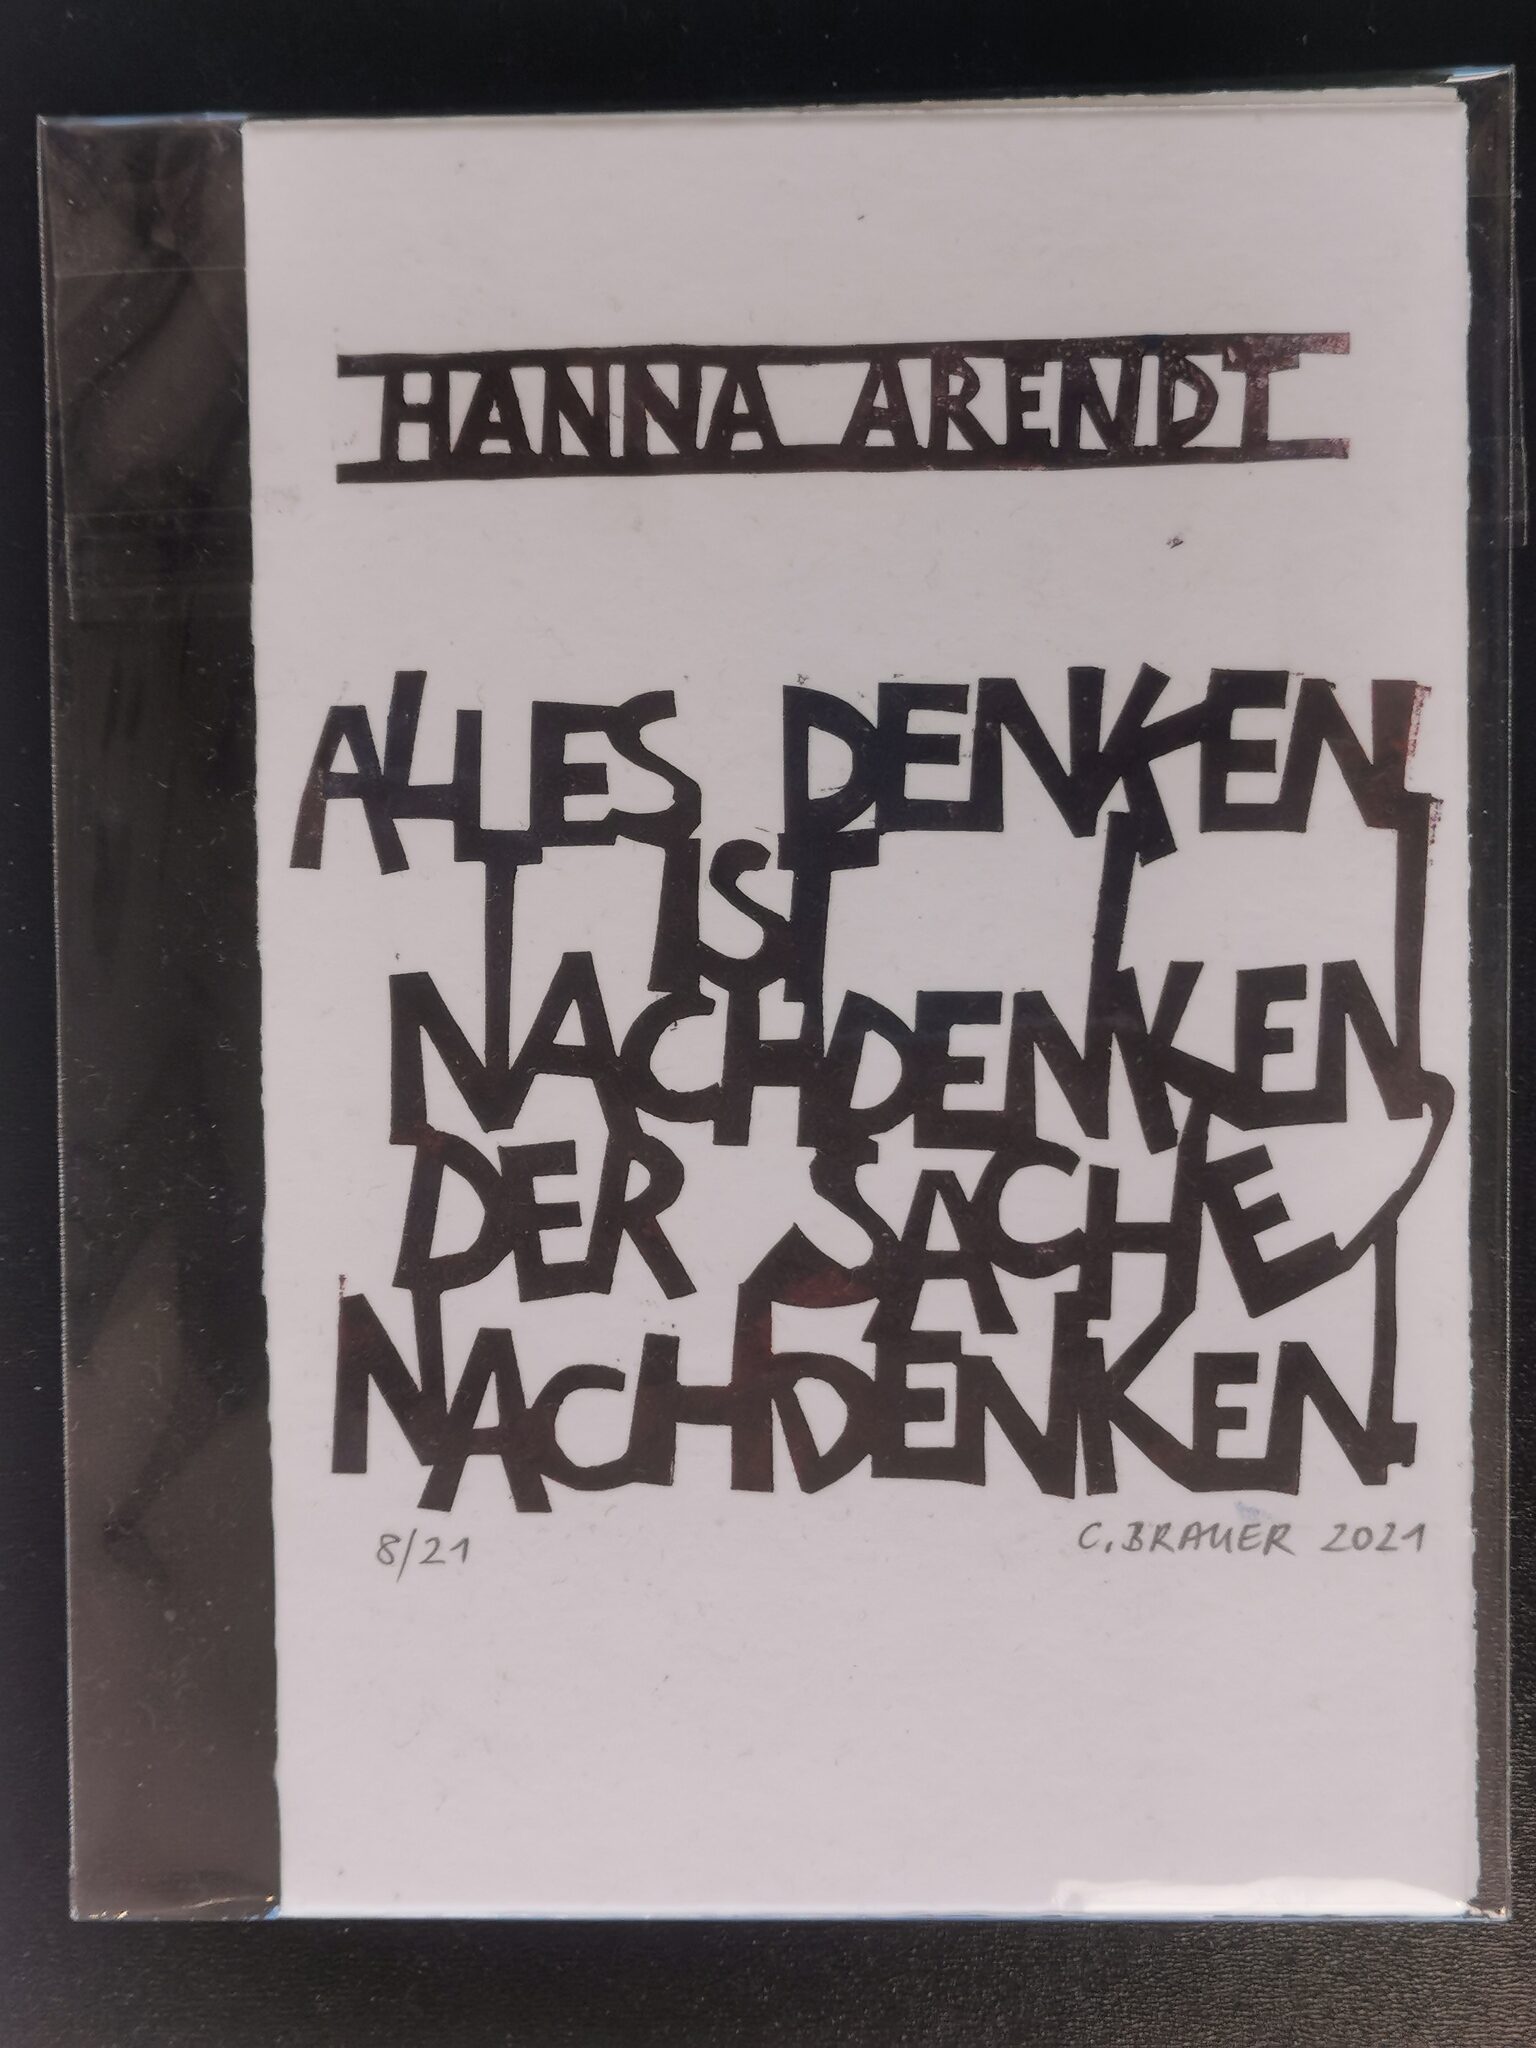 HANNA ARENDT
ALLES DENKEN
IST
NACHDENKEN
DER SACHE
NACHDENKEN.
8/21 C. BRAUER 2021